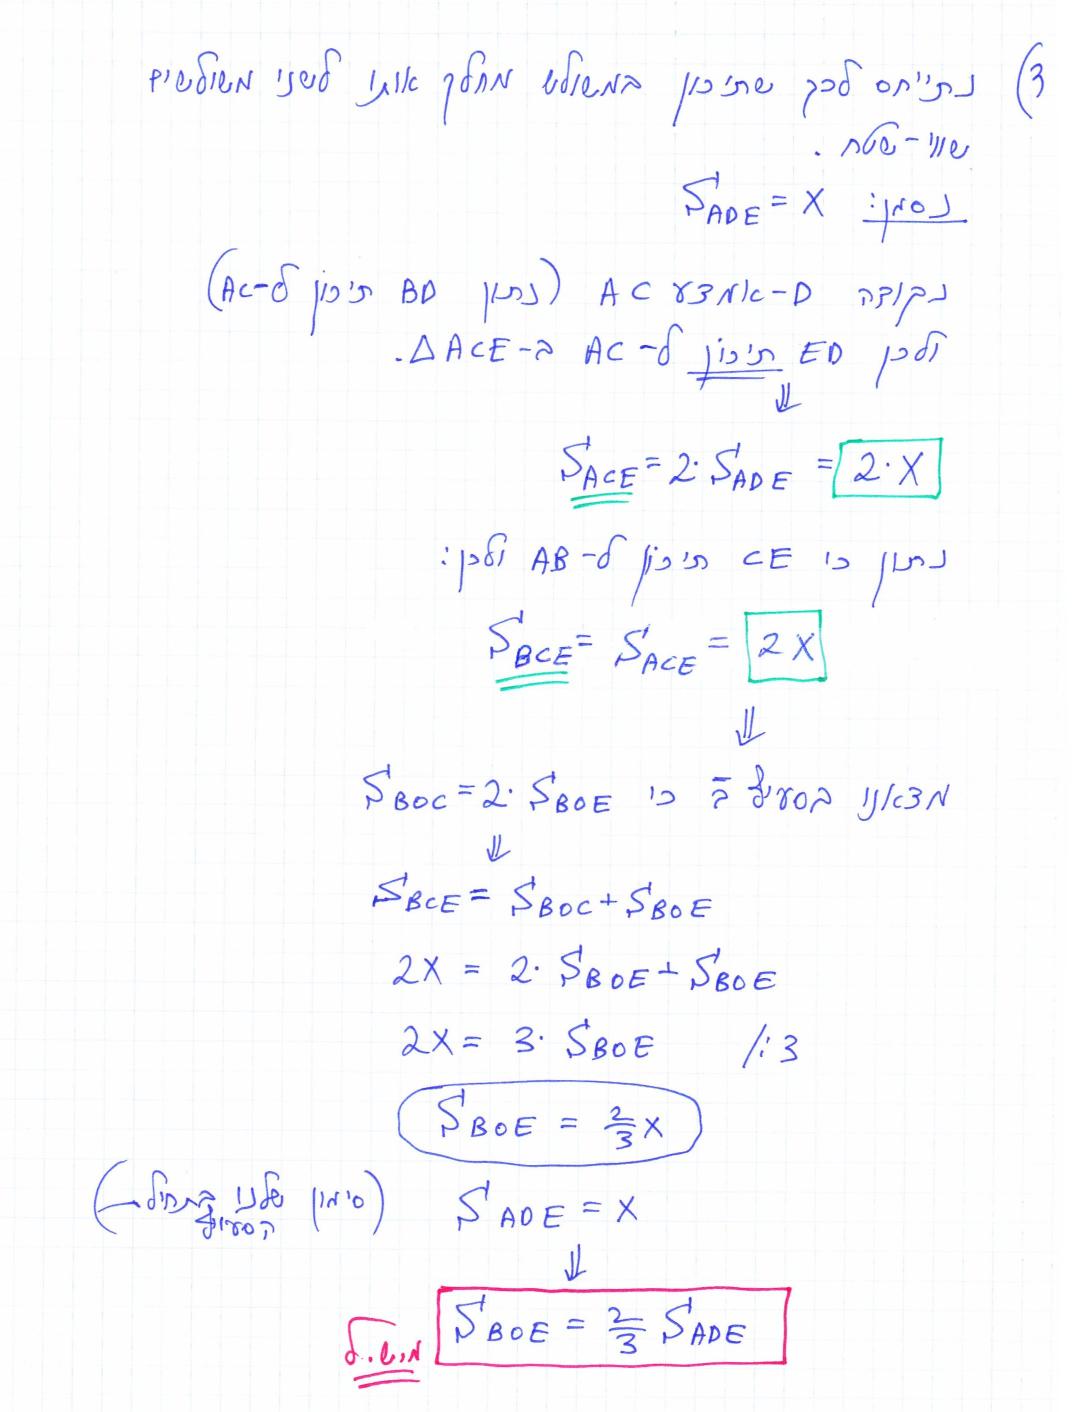 3) נתייחס לכך שתיכון במשולש מחלק אותו לשני משולשים
שווי-שטח.
נסמן: S_ADE = X
נקודה D-אמצע AC (נתון BD תיכון ל-AC)
ולכן ED תיכון ל-AC ב-ΔACE.
⇓
S_ACE = 2·S_ADE = 2·X
נתון כי CE תיכון ל-AB ולכן:
S_BCE = S_ACE = 2X
⇓
מצאנו בסעיף ב כי S_BOC = 2·S_BOE
⇓
S_BCE = S_BOC + S_BOE
2X = 2·S_BOE + S_BOE
2X = 3·S_BOE /:3
S_BOE = 2/3 X
S_ADE = X (סימון שלנו בתחילת הסעיף)
⇓
S_BOE = 2/3 S_ADE
מ.ש.ל